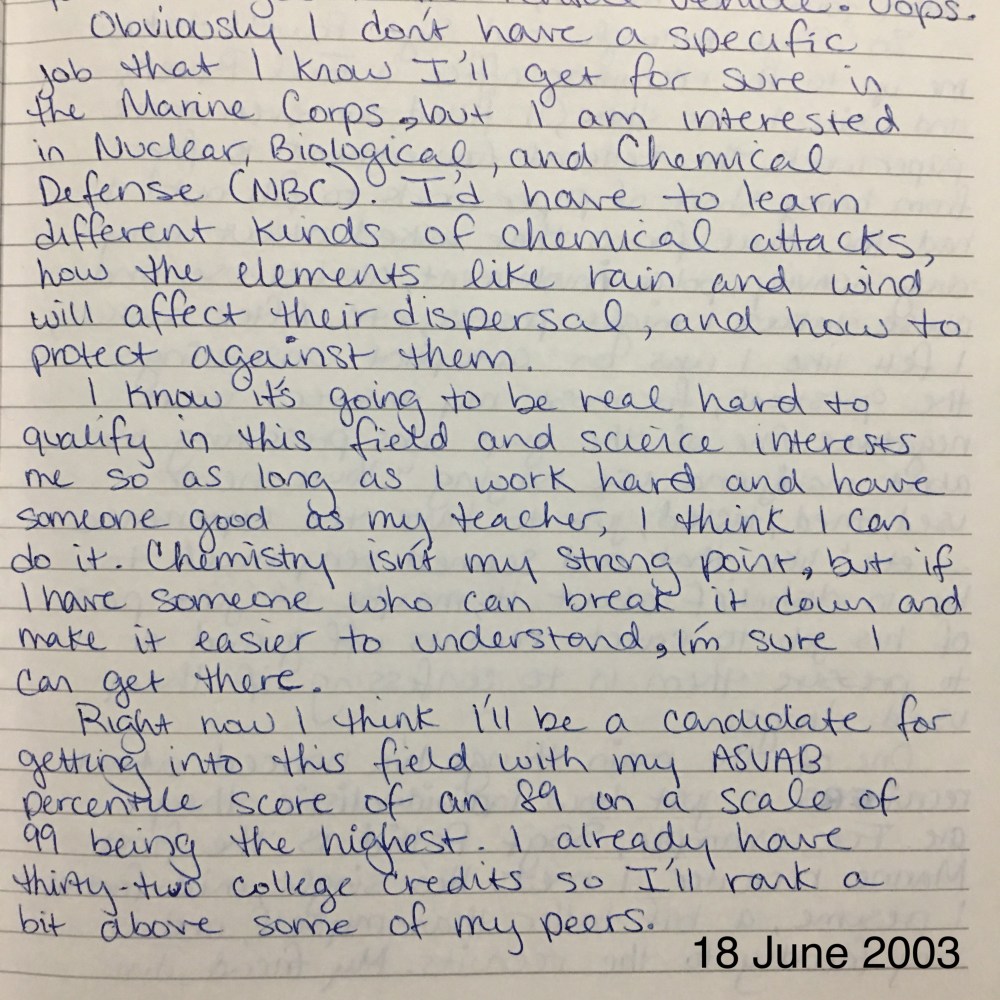 Oops.
Obviously I don't have a specific
job that I know I'll get for sure in
the Marine Corps, but I am interested
in Nuclear, Biological, and Chemical
Defense (NBC). I'd have to learn
different kinds of chemical attacks,
how the elements like rain and wind
will affect their dispersal, and how to
protect against them.
I know it's going to be real hard to
qualify in this field and science interests
me so as long as I work hard and have
someone good as my teacher, I think I can
do it. Chemistry isn't my strong point, but if
I have someone who can break it down and
make it easier to understand, I'm sure I
can get there.
Right now I think I'll be a candidate for
getting into this field with my ASVAB
percentile score of an 89 on a scale of
99 being the highest. I already have
thirty-two college credits so I'll rank a
bit above some of my peers.
18 June 2003